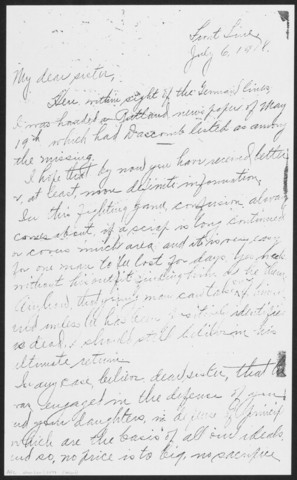 Front Lines
July 6, 1918.
My dear sister,
Here, within sight of the German lines
I was handed a Rutland newspaper of May
19th which had Dascomb listed as among
the missing.
I hope that by now you have received better
or, at least more definite information,
In this fighting game, confusion always
comes about, if a scrap is long continued
or covers much area and it is very easy
for one man to be lost for days
without his outfit finding him.
man
unless he has been identified
as dead, I should still believe in his
ultimate return.
In any case, believe dear sister, that he
was engaged in the defence of you
and your daughters, in defence of principles
which are the basis of all our ideals,
and so, no price is to big, no sacrifice